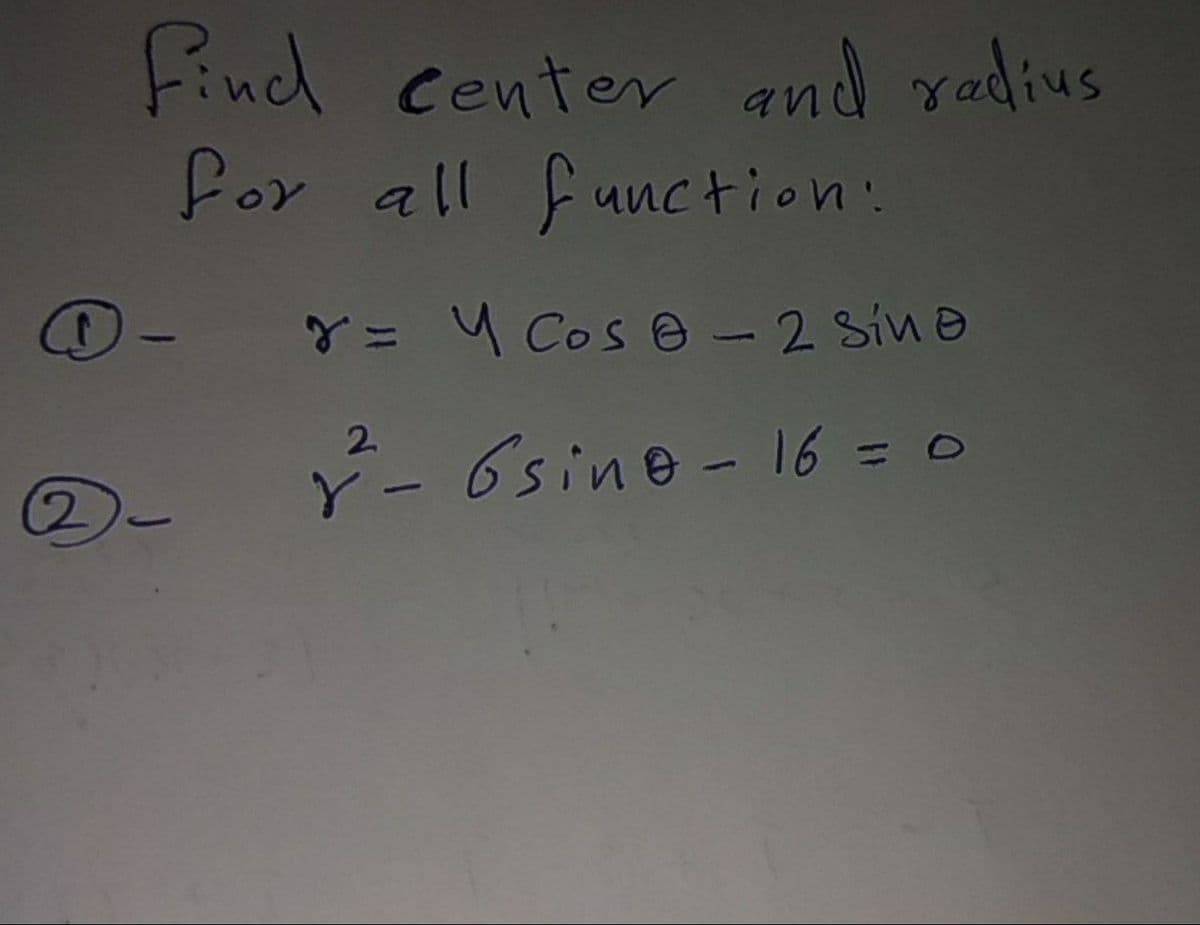 Find center and radius
for all function:
①- r = 4 Cos θ - 2 Sin θ
②- r² - 6 sin θ - 16 = 0